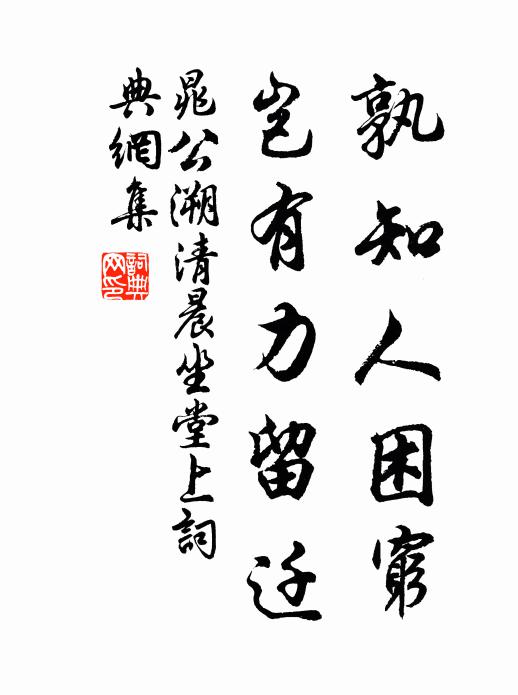 孰知人困窮
岂有力留迁
晁公溯清晨坐堂上詞
典網集
詞典网印